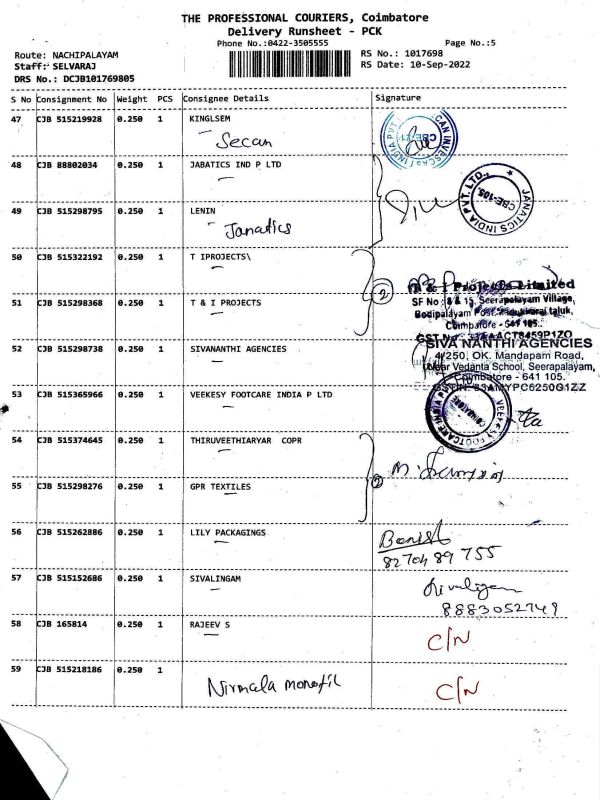 THE PROFESSIONAL COURIERS, Coimbatore
Delivery Runsheet - PCK
Phone No.:0422-3505555
Page No.:5
Route: NACHIPALAYAM
RS No.: 1017698
Staff: SELVARAJ
RS Date: 10-Sep-2022
DRS No.: DCJB101769805
S No Consignment No Weight PCS Consignee Details Signature
47 CJB 515219928 0.250 1 KINGLSEM
Secan
48 CJB 88802034 0.250 1 JABATICS IND P LTD
JANATICS INDIA PVT. LTD.,
CBE-105.
49 CJB 515298795 0.250 1 LENIN
Janatics
50 CJB 515322192 0.250 1 T IPROJECTS\
2
Projects Limited
51 CJB 515298368 0.250 1 T & I PROJECTS
SF No : & 15, Seerapalayam Village,
Coimbatore - 641 105.
52 CJB 515298738 0.250 1 SIVANANTHI AGENCIES
SIVA NANTHI AGENCIES
4/250, OK. Mandapam Road,
Near Vedanta School, Seerapalayam,
Coimbatore - 641 105.
53 CJB 515365966 0.250 1 VEEKESY FOOTCARE INDIA P LTD
54 CJB 515374645 0.250 1 THIRUVEETHIARYAR COPR
2
55 CJB 515298276 0.250 1 GPR TEXTILES
56 CJB 515262886 0.250 1 LILY PACKAGINGS
82704 89 755
57 CJB 515152686 0.250 1 SIVALINGAM
8883052749
58 CJB 165814 0.250 1 RAJEEV S
C/N
59 CJB 515218186 0.250 1
Nirmala monofil
C/N